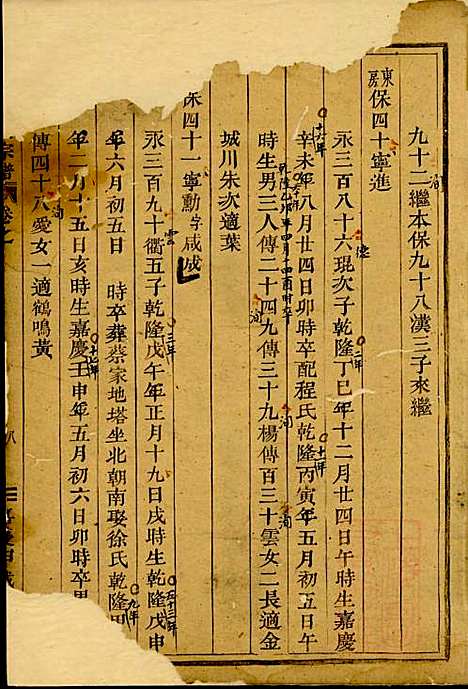 九十二繼本保九十八漢三子來繼
東房
保四十寧進
永三百八十六琨次子乾隆丁巳年十二月廿四日午時生嘉慶
辛未年八月廿四日卯時卒配程氏乾隆丙寅年五月初五日午
乾隆乙卯年四月十四酉時卒
時生男三人傳二十四九傳三十九楊傳百三十雲女二長適金
城川朱次適葉
保四十一寧勳字咸成
永三百九十衢五子乾隆戊午年正月十九日戌時生乾隆戊申
年六月初五日 時卒葬蔡家地塔坐北朝南娶徐氏乾隆甲
年二月十五日亥時生嘉慶壬申年五月初六日卯時卒男
傳四十八愛女一適鶴鳴黃
宗譜 卷之
八